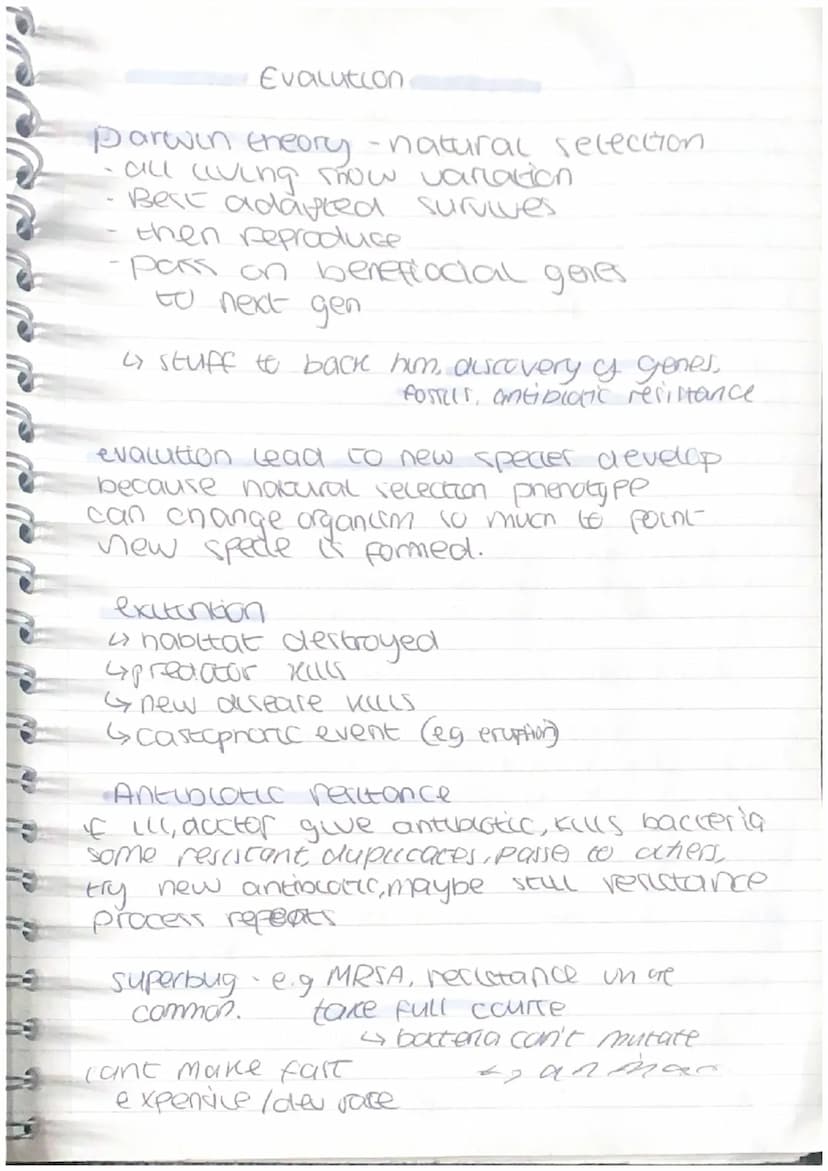 Evalution
Darwin theory - natural selection
- all living show variation
- Best adapted survives
- then reproduce
- pass on beneffiocial genes
to next gen
↳ stuff to back him, discovery of genes,
fossils, antibiotic resistance
evalution lead to new species develop
because natural selection phenotype
can change organism so much to point
new specie is formed.
↳ habitat destroyed
↳ predator kills
↳ new disease kills
↳ castophoric event (eg eruption)
Antibiotic resitance
if ill, doctor give antibiotic, kills bacteria
some resistant, duplicates, passe to others,
try new antibiotic, maybe still resistance
process repeats
superbug - e.g MRSA, resistance
common. take full course
↳ bacteria can't mutate
cant make fast
expensive /dev